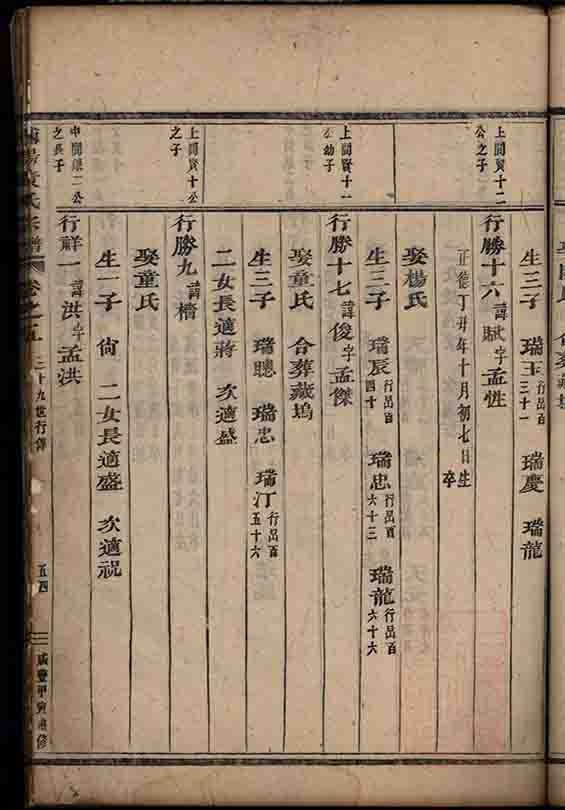 生三子 瑞玉行出百三十一 瑞慶 瑞龍
上聞賢十二公之子
行勝十六諱賦字孟性
正德丁丑年十月初七日生
卒
娶楊氏
生三子 瑞辰行出百四十 瑞忠行出百六十三 瑞龍行出百六十六
上聞賢十一公幼子
行勝十七諱俊字孟傑
娶童氏 合葬藏塢
生三子 瑞聰 瑞忠 瑞汀行出百五十六
二女長適蔣 次適盛
上聞賢十公之子
行勝九諱橋
娶童氏
生一子 尙 二女長適盛 次適祝
中聞 二公之長子
行祥一諱洪字孟洪
氏宗譜 卷之五 三十九世行傳 五四 咸豐甲寅重修